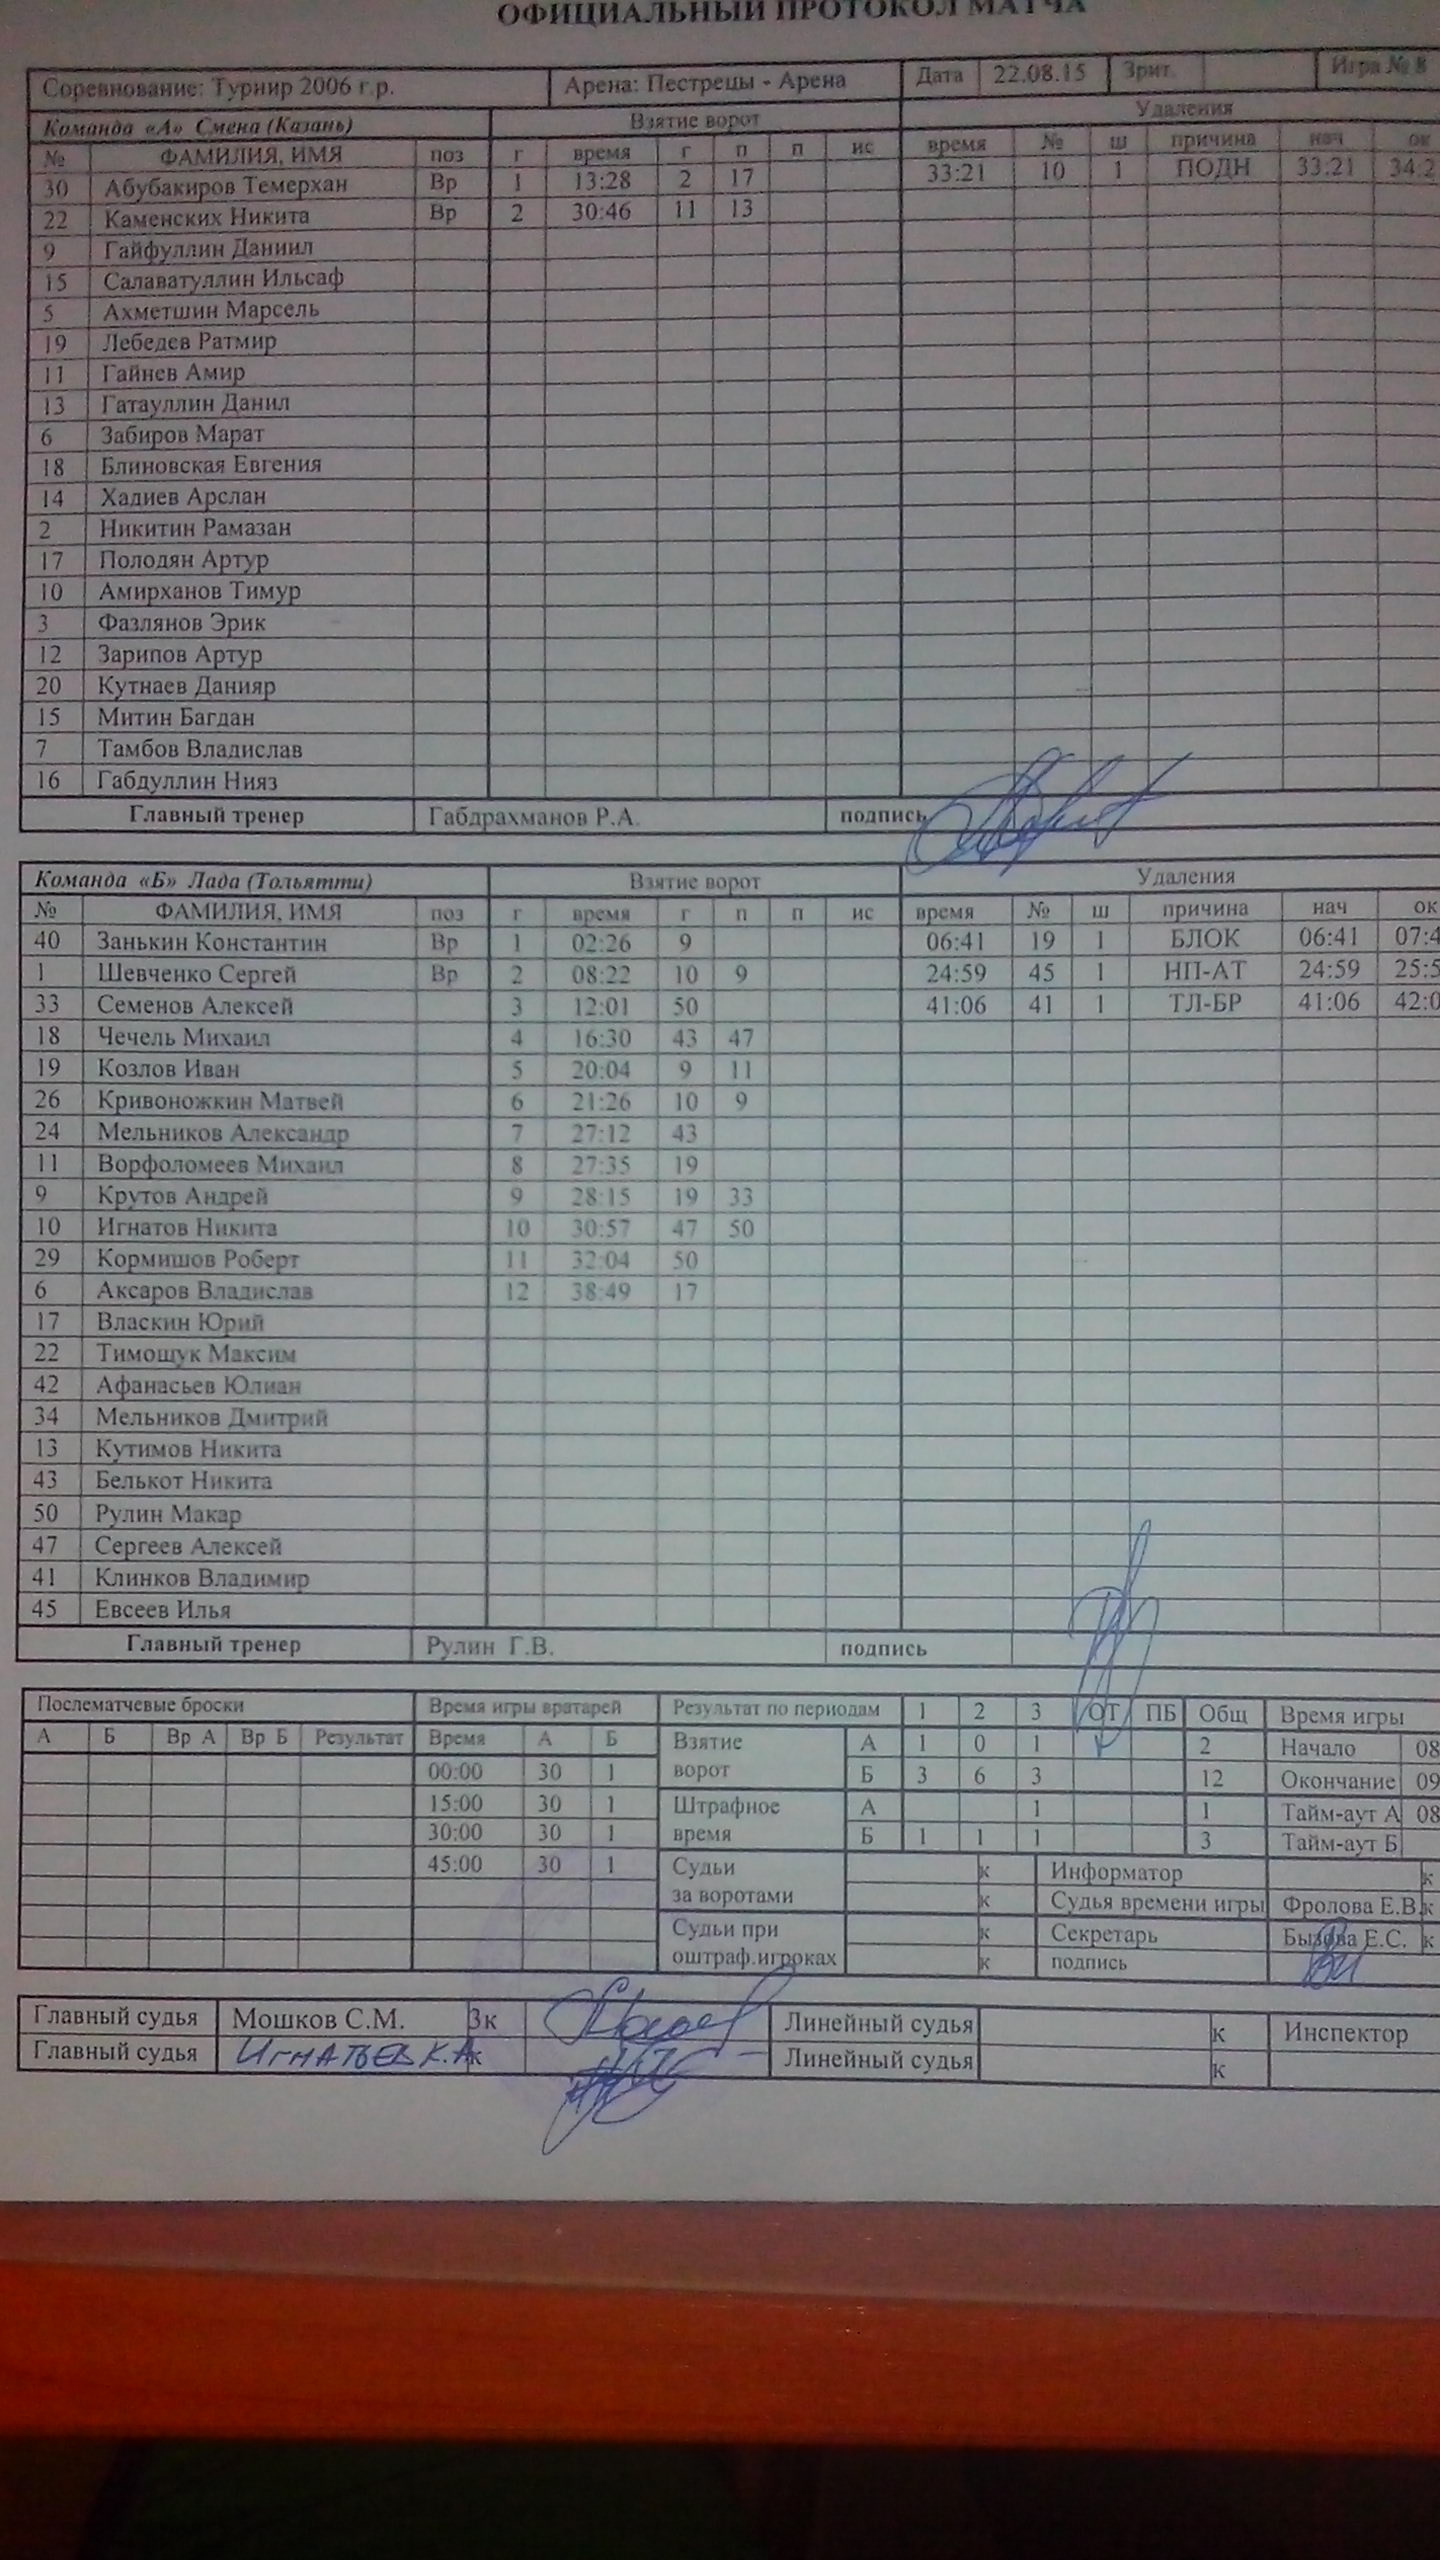 ОФИЦИАЛЬНЫЙ ПРОТОКОЛ МАТЧА
Соревнование: Турнир 2006 г.р. Арена: Пестрецы - Арена Дата 22.08.15 Зрит. Игра № 8
Команда «А» Смена (Казань) Взятие ворот Удаления
№ ФАМИЛИЯ, ИМЯ поз г время г п п ис время № ш причина нач ок
30 Абубакиров Темерхан Вр 1 13:28 2 17 33:21 10 1 ПОДН 33:21 34:2
22 Каменских Никита Вр 2 30:46 11 13
9 Гайфуллин Даниил
15 Салаватуллин Ильсаф
5 Ахметшин Марсель
19 Лебедев Ратмир
11 Гайнев Амир
13 Гатауллин Данил
6 Забиров Марат
18 Блиновская Евгения
14 Хадиев Арслан
2 Никитин Рамазан
17 Полодян Артур
10 Амирханов Тимур
3 Фазлянов Эрик
12 Зарипов Артур
20 Кутнаев Данияр
15 Митин Багдан
7 Тамбов Владислав
16 Габдуллин Нияз
Главный тренер Габдрахманов Р.А. подпись
Команда «Б» Лада (Тольятти) Взятие ворот Удаления
№ ФАМИЛИЯ, ИМЯ поз г время г п п ис время № ш причина нач ок
40 Занькин Константин Вр 1 02:26 9 06:41 19 1 БЛОК 06:41 07:4
1 Шевченко Сергей Вр 2 08:22 10 9 24:59 45 1 НП-АТ 24:59 25:5
33 Семенов Алексей 3 12:01 50 41:06 41 1 ТЛ-БР 41:06 42:0
18 Чечель Михаил 4 16:30 43 47
19 Козлов Иван 5 20:04 9 11
26 Кривоножкин Матвей 6 21:26 10 9
24 Мельников Александр 7 27:12 43
11 Ворфоломеев Михаил 8 27:35 19
9 Крутов Андрей 9 28:15 19 33
10 Игнатов Никита 10 30:57 47 50
29 Кормишов Роберт 11 32:04 50
6 Аксаров Владислав 12 38:49 17
17 Власкин Юрий
22 Тимощук Максим
42 Афанасьев Юлиан
34 Мельников Дмитрий
13 Кутимов Никита
43 Белькот Никита
50 Рулин Макар
47 Сергеев Алексей
41 Клинков Владимир
45 Евсеев Илья
Главный тренер Рулин Г.В. подпись
Послематчевые броски Время игры вратарей Результат по периодам 1 2 3 ОТ ПБ Общ Время игры
А Б Вр А Вр Б Результат Время А Б Взятие ворот А 1 0 1 2 Начало 08
00:00 30 1 Б 3 6 3 12 Окончание 09
15:00 30 1 Штрафное время А 1 1 Тайм-аут А 08
30:00 30 1 Б 1 1 1 3 Тайм-аут Б
45:00 30 1 Судьи за воротами к Информатор к
к Судья времени игры Фролова Е.В. к
Судьи при оштраф.игроках к Секретарь Бызова Е.С. к
к подпись
Главный судья Мошков С.М. 3к Линейный судья к Инспектор
Главный судья Игнатьев К.А. к Линейный судья к